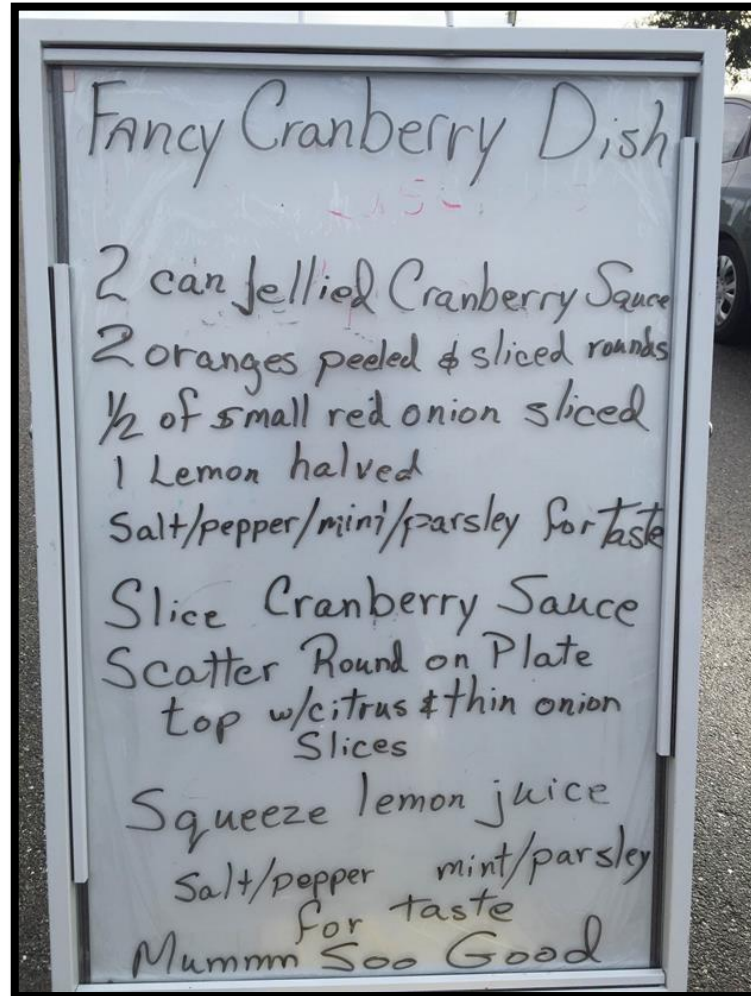 Fancy Cranberry Dish
2 can Jellied Cranberry Sauce
2 oranges peeled & sliced rounds
1/2 of small red onion sliced
1 Lemon halved
Salt/pepper/mint/parsley for taste
Slice Cranberry Sauce
Scatter Round on Plate
top w/citrus & thin onion
Slices
Squeeze lemon juice
Salt/pepper mint/parsley
for taste
Mummm Soo Good